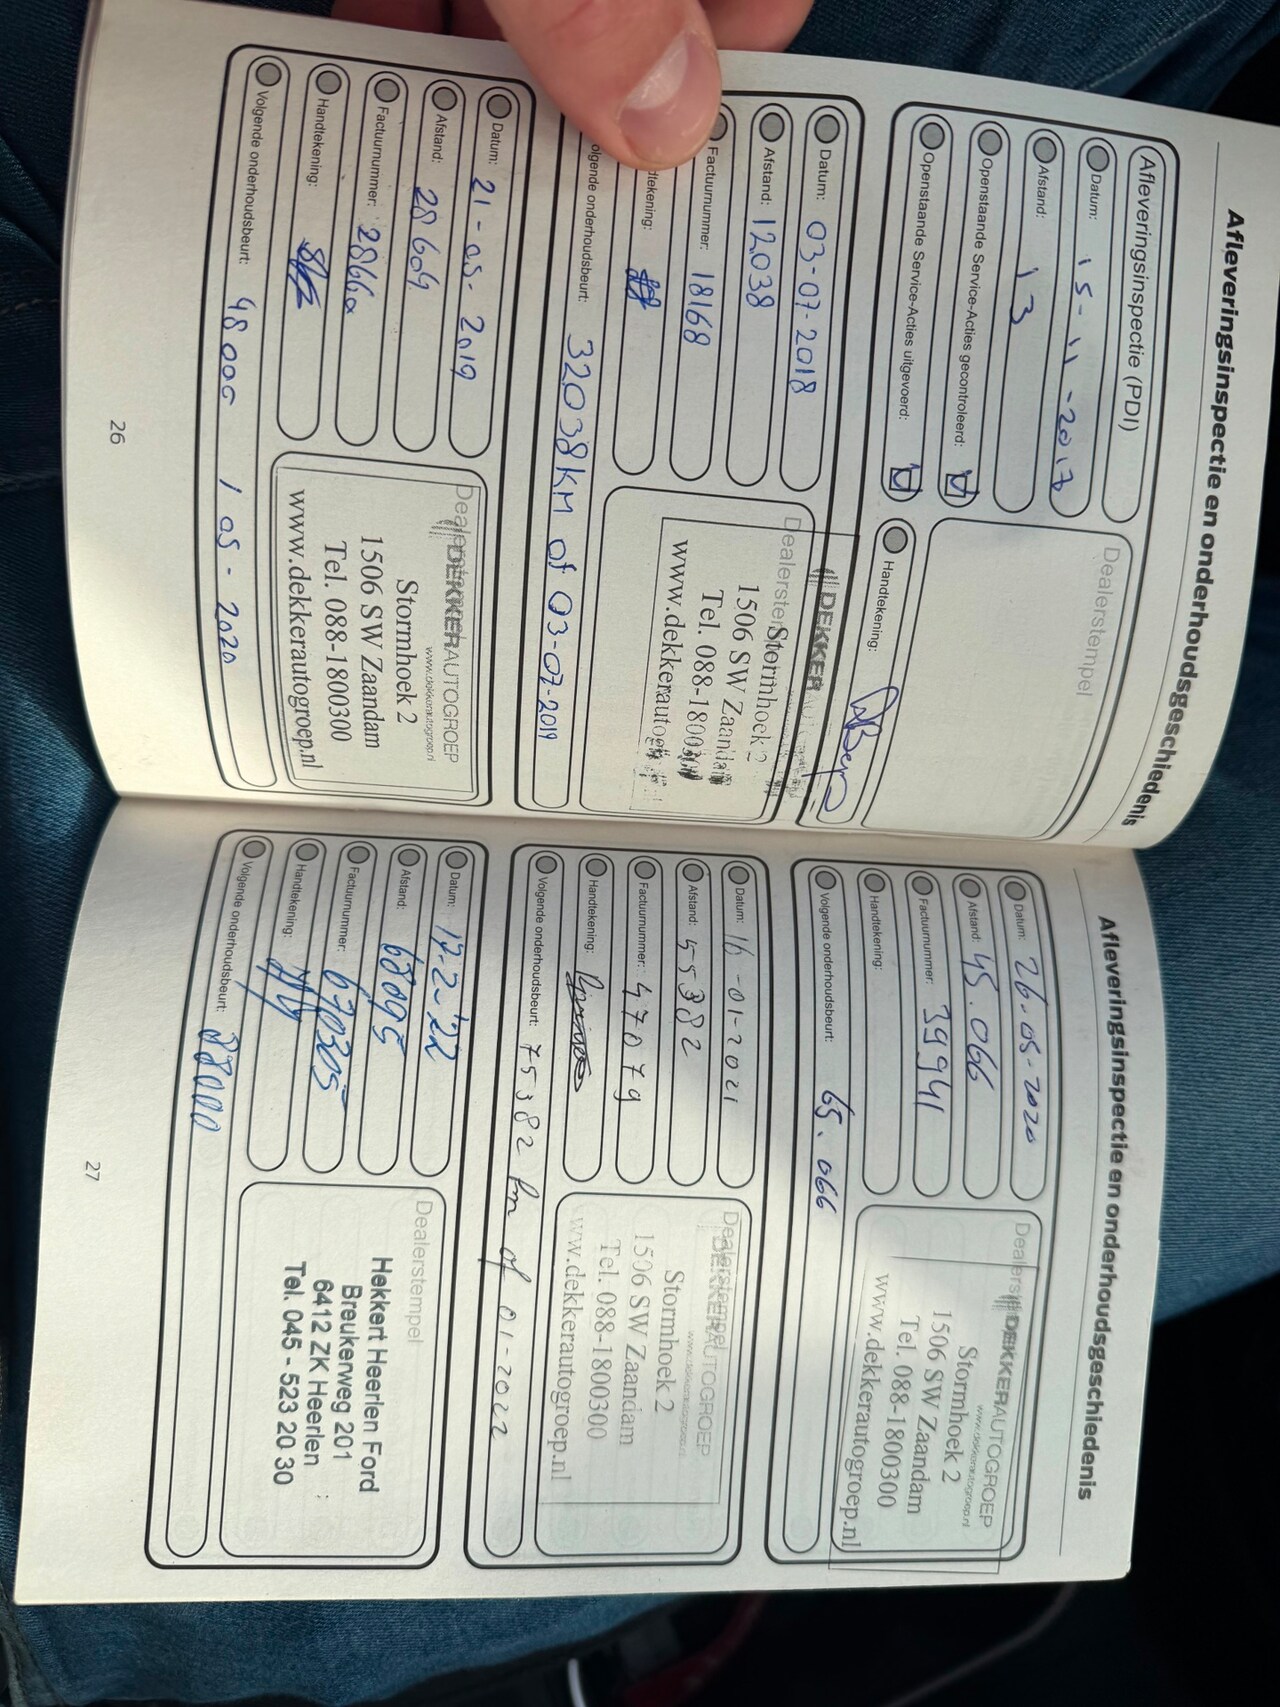 Afleveringsinspectie en onderhoudsgeschiedenis
Afleveringsinspectie (PDI)
Dealerstempel
Datum: 15-11-2017
Afstand: 13
Openstaande Service-Acties gecontroleerd:
Openstaande Service-Acties uitgevoerd:
Handtekening:
Datum: 03-07-2018
Afstand: 12038
Factuurnummer: 18168
dtekening:
olgende onderhoudsbeurt: 32038KM of 03-07-2019
Dealerstem
DEKKER
Stormhoek 2
1506 SW Zaandam
Tel. 088-1800300
www.dekkerautogr
Datum: 21-05-2019
Afstand: 28609
Factuurnummer: 28660
Handtekening:
Volgende onderhoudsbeurt: 48000 / 05-2020
Dealerstempel
DEKKERAUTOGROEP
www.dekkerautogroep.nl
Stormhoek 2
1506 SW Zaandam
Tel. 088-1800300
www.dekkerautogroep.nl
26
Afleveringsinspectie en onderhoudsgeschiedenis
Datum: 26-05-2020
Afstand: 45.066
Factuurnummer: 39941
Handtekening:
Volgende onderhoudsbeurt: 65.066
Dealers
DEKKERAUTOGROEP
www.dekkerautogroep.nl
Stormhoek 2
1506 SW Zaandam
Tel. 088-1800300
www.dekkerautogroep.nl
Datum: 16-01-2021
Afstand: 55382
Factuurnummer: 47079
Handtekening:
Volgende onderhoudsbeurt: 75382 km of 01-2022
Dealerstempel
DEKKERAUTOGROEP
www.dekkerautogroep.nl
Stormhoek 2
1506 SW Zaandam
Tel. 088-1800300
ww.dekkerautogroep.nl
Datum: 17-2-'22
Afstand: 68095
Factuurnummer: 670305
Handtekening:
Volgende onderhoudsbeurt: 88000
Dealerstempel
Hekkert Heerlen Ford
Breukerweg 201
6412 ZK Heerlen
Tel. 045 - 523 20 30
27